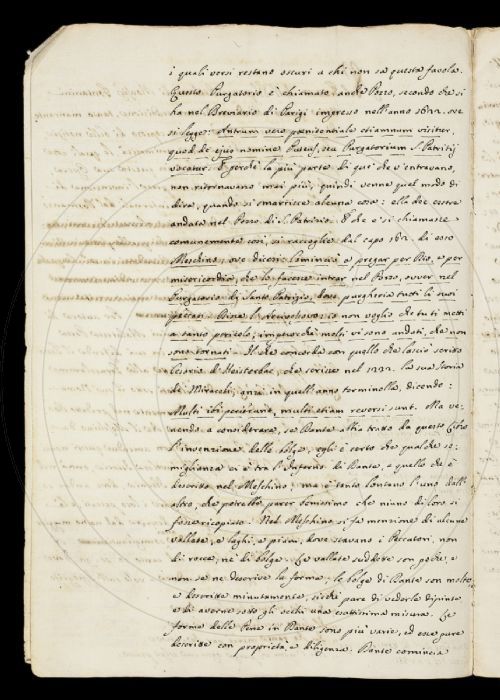 i quali versi restano oscuri a chi non sa questa favola.
Questo Purgatorio è chiamato anche Pozzo, secondo che si
ha nel Breviario di Parigi impresso nell'anno 1622. ove
si legge: Antrum vero pœnitentiale etiamnum visitur,
quod de ejus nomine Puteus, seu Purgatorium S. Patritij
vocatur. E perchè la più parte di quei che v'entravano,
non ritornavano mai più, quindi venne quel modo di
dire, quando si smarrisce alcuna cosa: ella dee essere
andata nel Pozzo di S. Patrizio. E che e' si chiamasse
comunemente così, si raccoglie dal capo 162. di esso
Meschino, ove dicesi: Cominciò a pregar per Dio, e per
misericordia, che lo facesse intrar nel Pozzo, ovver nel
Purgatorio di Santo Patrizio, dove purgheria tutti li suoi
peccati. Disse l'Arcivescovo: io non voglio che tu ti metti
a tanto pericolo; imperocchè molti vi sono andati, che non
sono tornati. Il che concorda con quello che lasciò scritto
Cesario di Heisterbac, che scrisse nel 1222. la sua Storia
de' Miracoli, anzi in quell'anno terminolla, dicendo:
Multi ibi perierunt, multi etiam reversi sunt. Ma ve-
nendo a considerare, se Dante abbia tratto da questo Libro
l'invenzione delle bolge, egli è certo che qualche so-
miglianza ci è tra l'Inferno di Dante, e quello che è
descritto nel Meschino; ma è tanto lontano l'uno dall'
altro, che potrebbe parer benissimo che niuno di loro si
fosse ricopiato. Nel Meschino si fa menzione di alcune
vallate, e laghi, e prigioni, dove stavano i Peccatori, non
di rocce, nè di bolge. Le vallate suddette son poche, e
non se ne descrive la forma; le bolge di Dante son molte,
e descritte minutamente, sicchè pare di vederle dipinte
e di averne sotto gli occhi una esattissima misura. Le
forme delle Pene in Dante sono più varie, ed esse pure
descritte con proprietà, e diligenza. Dante comincia